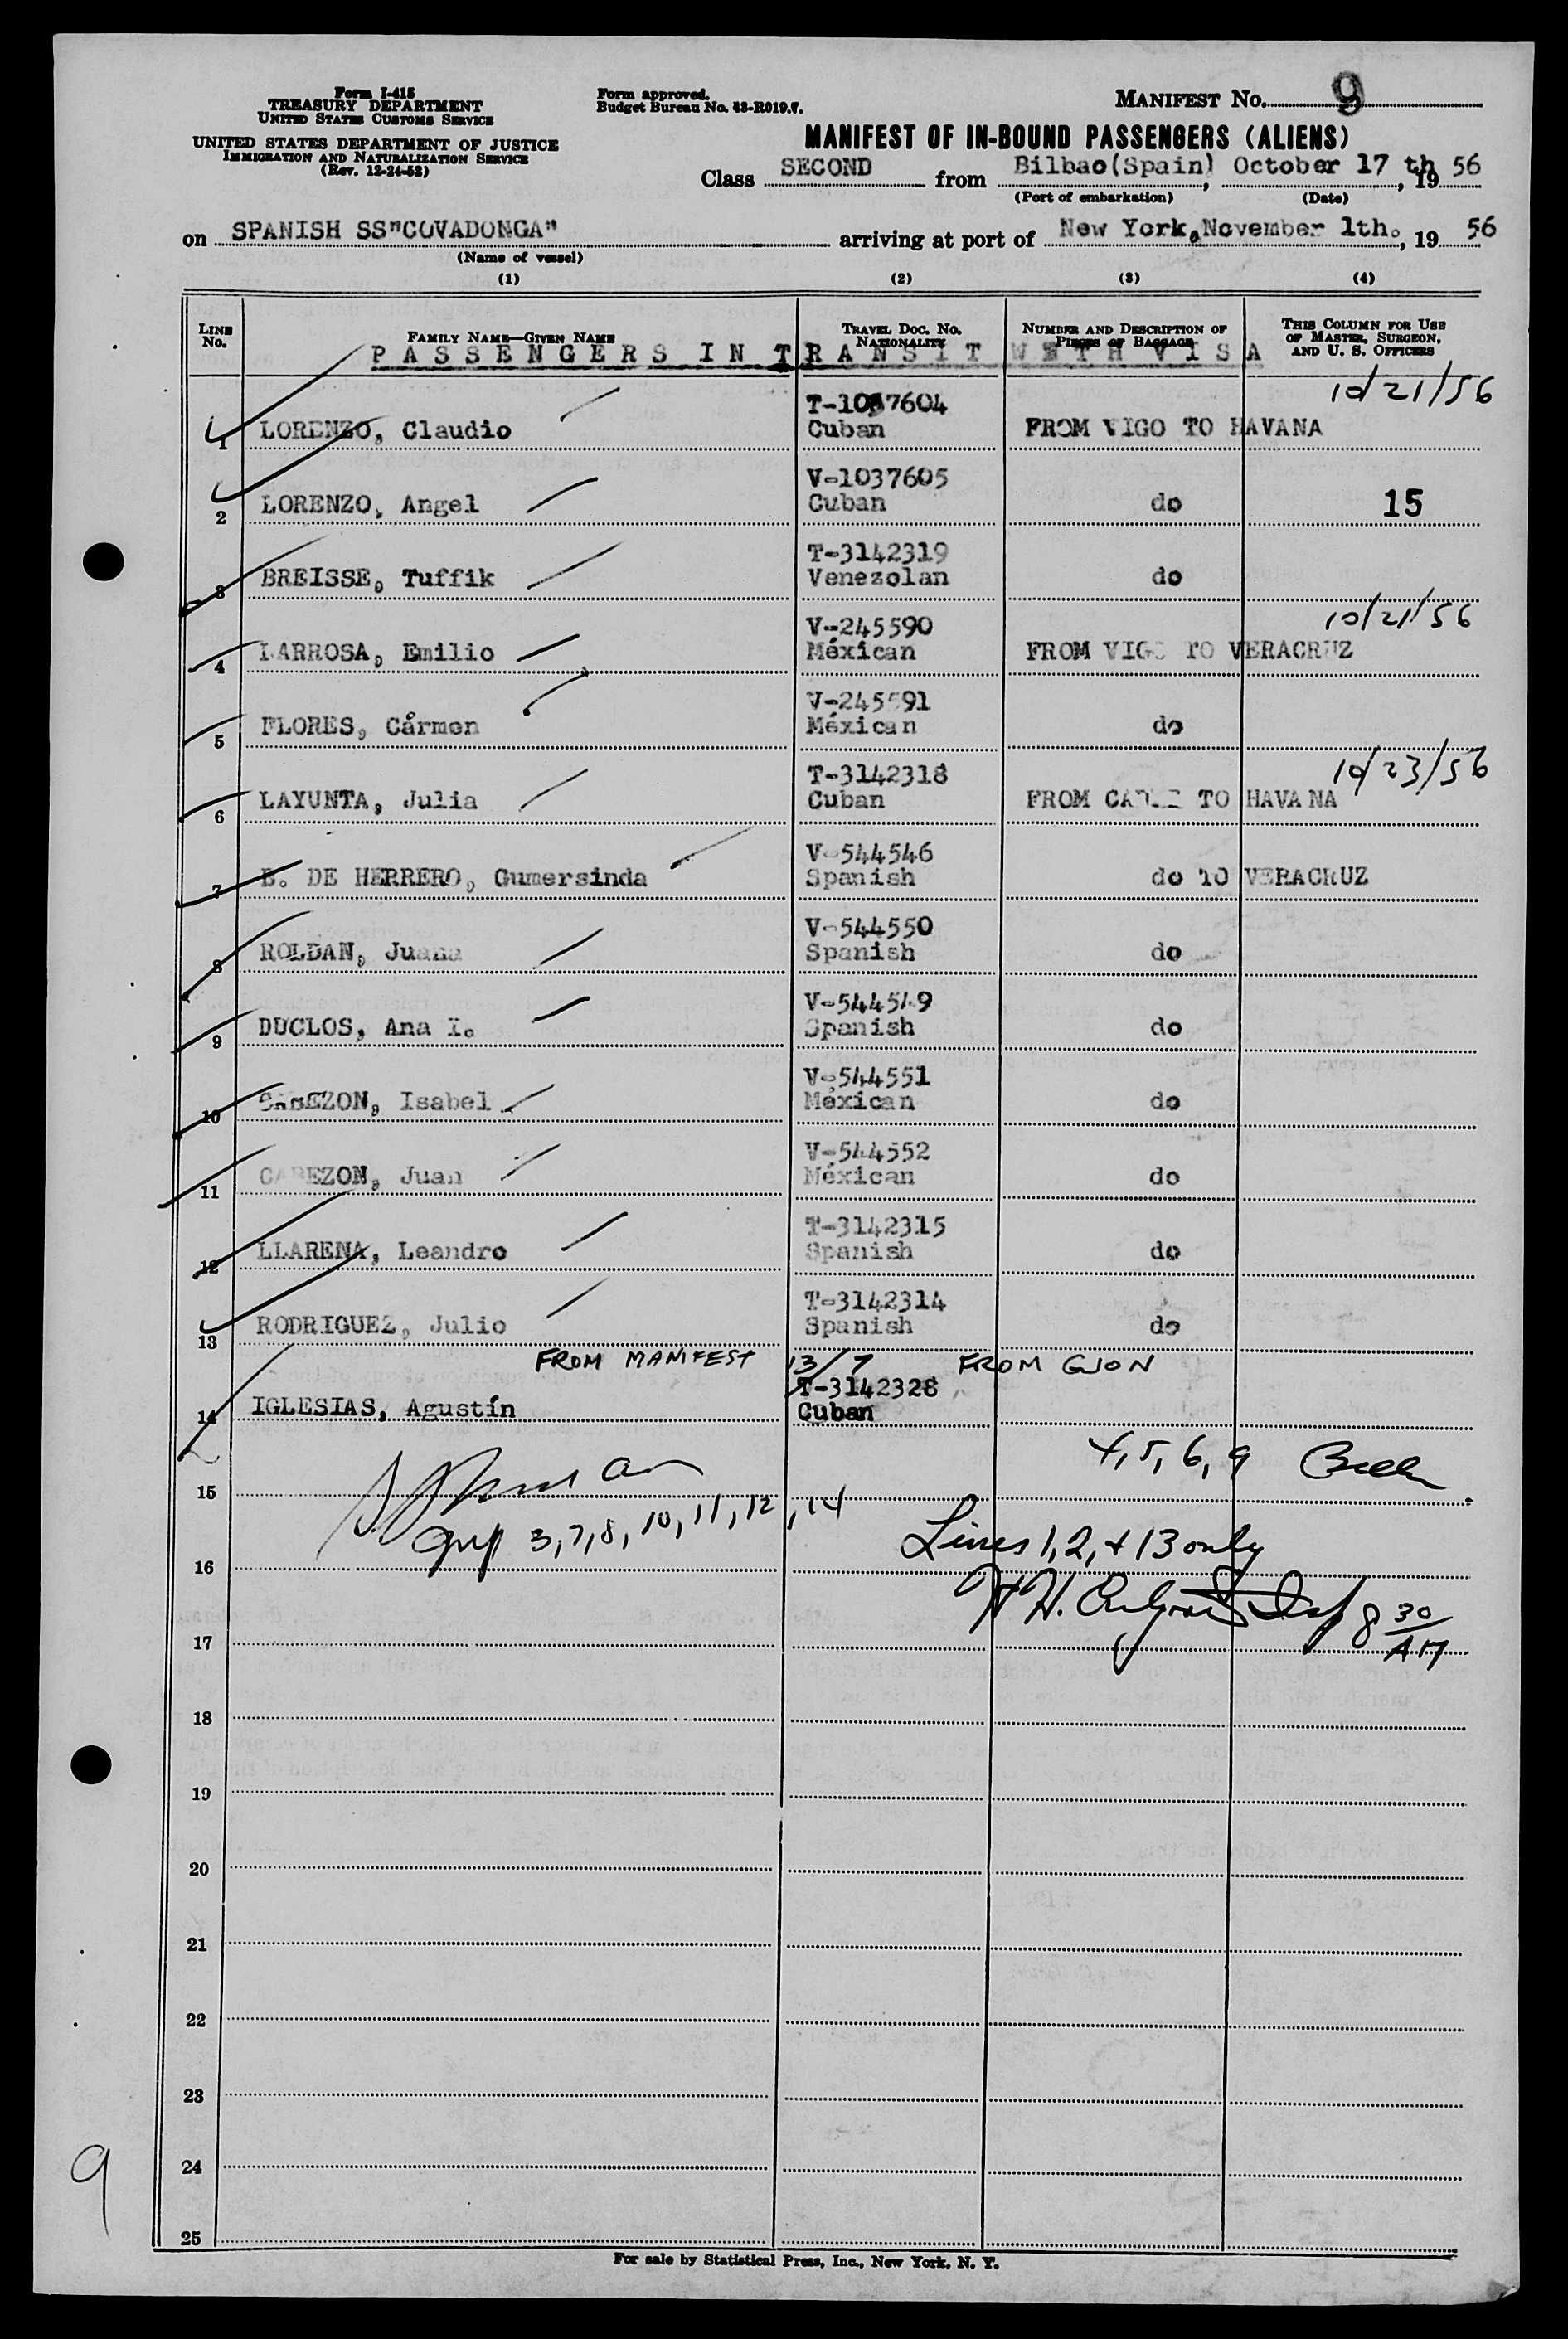 Form I-415
TREASURY DEPARTMENT
UNITED STATES CUSTOMS SERVICE
UNITED STATES DEPARTMENT OF JUSTICE
IMMIGRATION AND NATURALIZATION SERVICE
(Rev. 12-24-52)
Form approved.
Budget Bureau No. 43-R019.7.
MANIFEST NO. 9
MANIFEST OF IN-BOUND PASSENGERS (ALIENS)
Class SECOND from Bilbao(Spain), October 17 th, 19 56
(Port of embarkation) (Date)
on SPANISH SS"COVADONGA" arriving at port of New York, November 1th., 19 56
(Name of vessel)
(1) (2) (3) (4)
LINE NO. FAMILY NAME—GIVEN NAME TRAVEL DOC. NO. NATIONALITY NUMBER AND DESCRIPTION OF PIECES OF BAGGAGE THIS COLUMN FOR USE OF MASTER, SURGEON, AND U. S. OFFICERS
PASSENGERS IN TRANSIT WITH VISA
10/21/56
T-1037604
1 LORENZO, Claudio Cuban FROM VIGO TO HAVANA
V-1037605
2 LORENZO, Angel Cuban do 15
T-3142319
3 BREISSE, Tuffik Venezolan do
10/21/56
V-245590
4 LARROSA, Emilio Méxican FROM VIGO TO VERACRUZ
V-245591
5 FLORES, Cármen Méxican do
10/23/56
T-3142318
6 LAYUNTA, Julia Cuban FROM CADIZ TO HAVANA
V-544546
7 B. DE HERRERO, Gumersinda Spanish do TO VERACRUZ
V-544550
8 ROLDAN, Juana Spanish do
V-544549
9 DUCLOS, Ana I. Spanish do
V-544551
10 CABEZON, Isabel Méxican do
V-544552
11 CABEZON, Juan Méxican do
T-3142315
12 LLARENA, Leandro Spanish do
T-3142314
13 RODRIGUEZ, Julio Spanish do
FROM MANIFEST 13/7 FROM GIJON
T-3142328
14 IGLESIAS, Agustín Cuban
4, 5, 6, 9
15
3, 7, 8, 10, 11, 12, 14
Lines 1, 2, + 13 only
16
8 30 AM
17
18
19
20
21
22
23
24
25
9
For sale by Statistical Press, Inc., New York, N. Y.